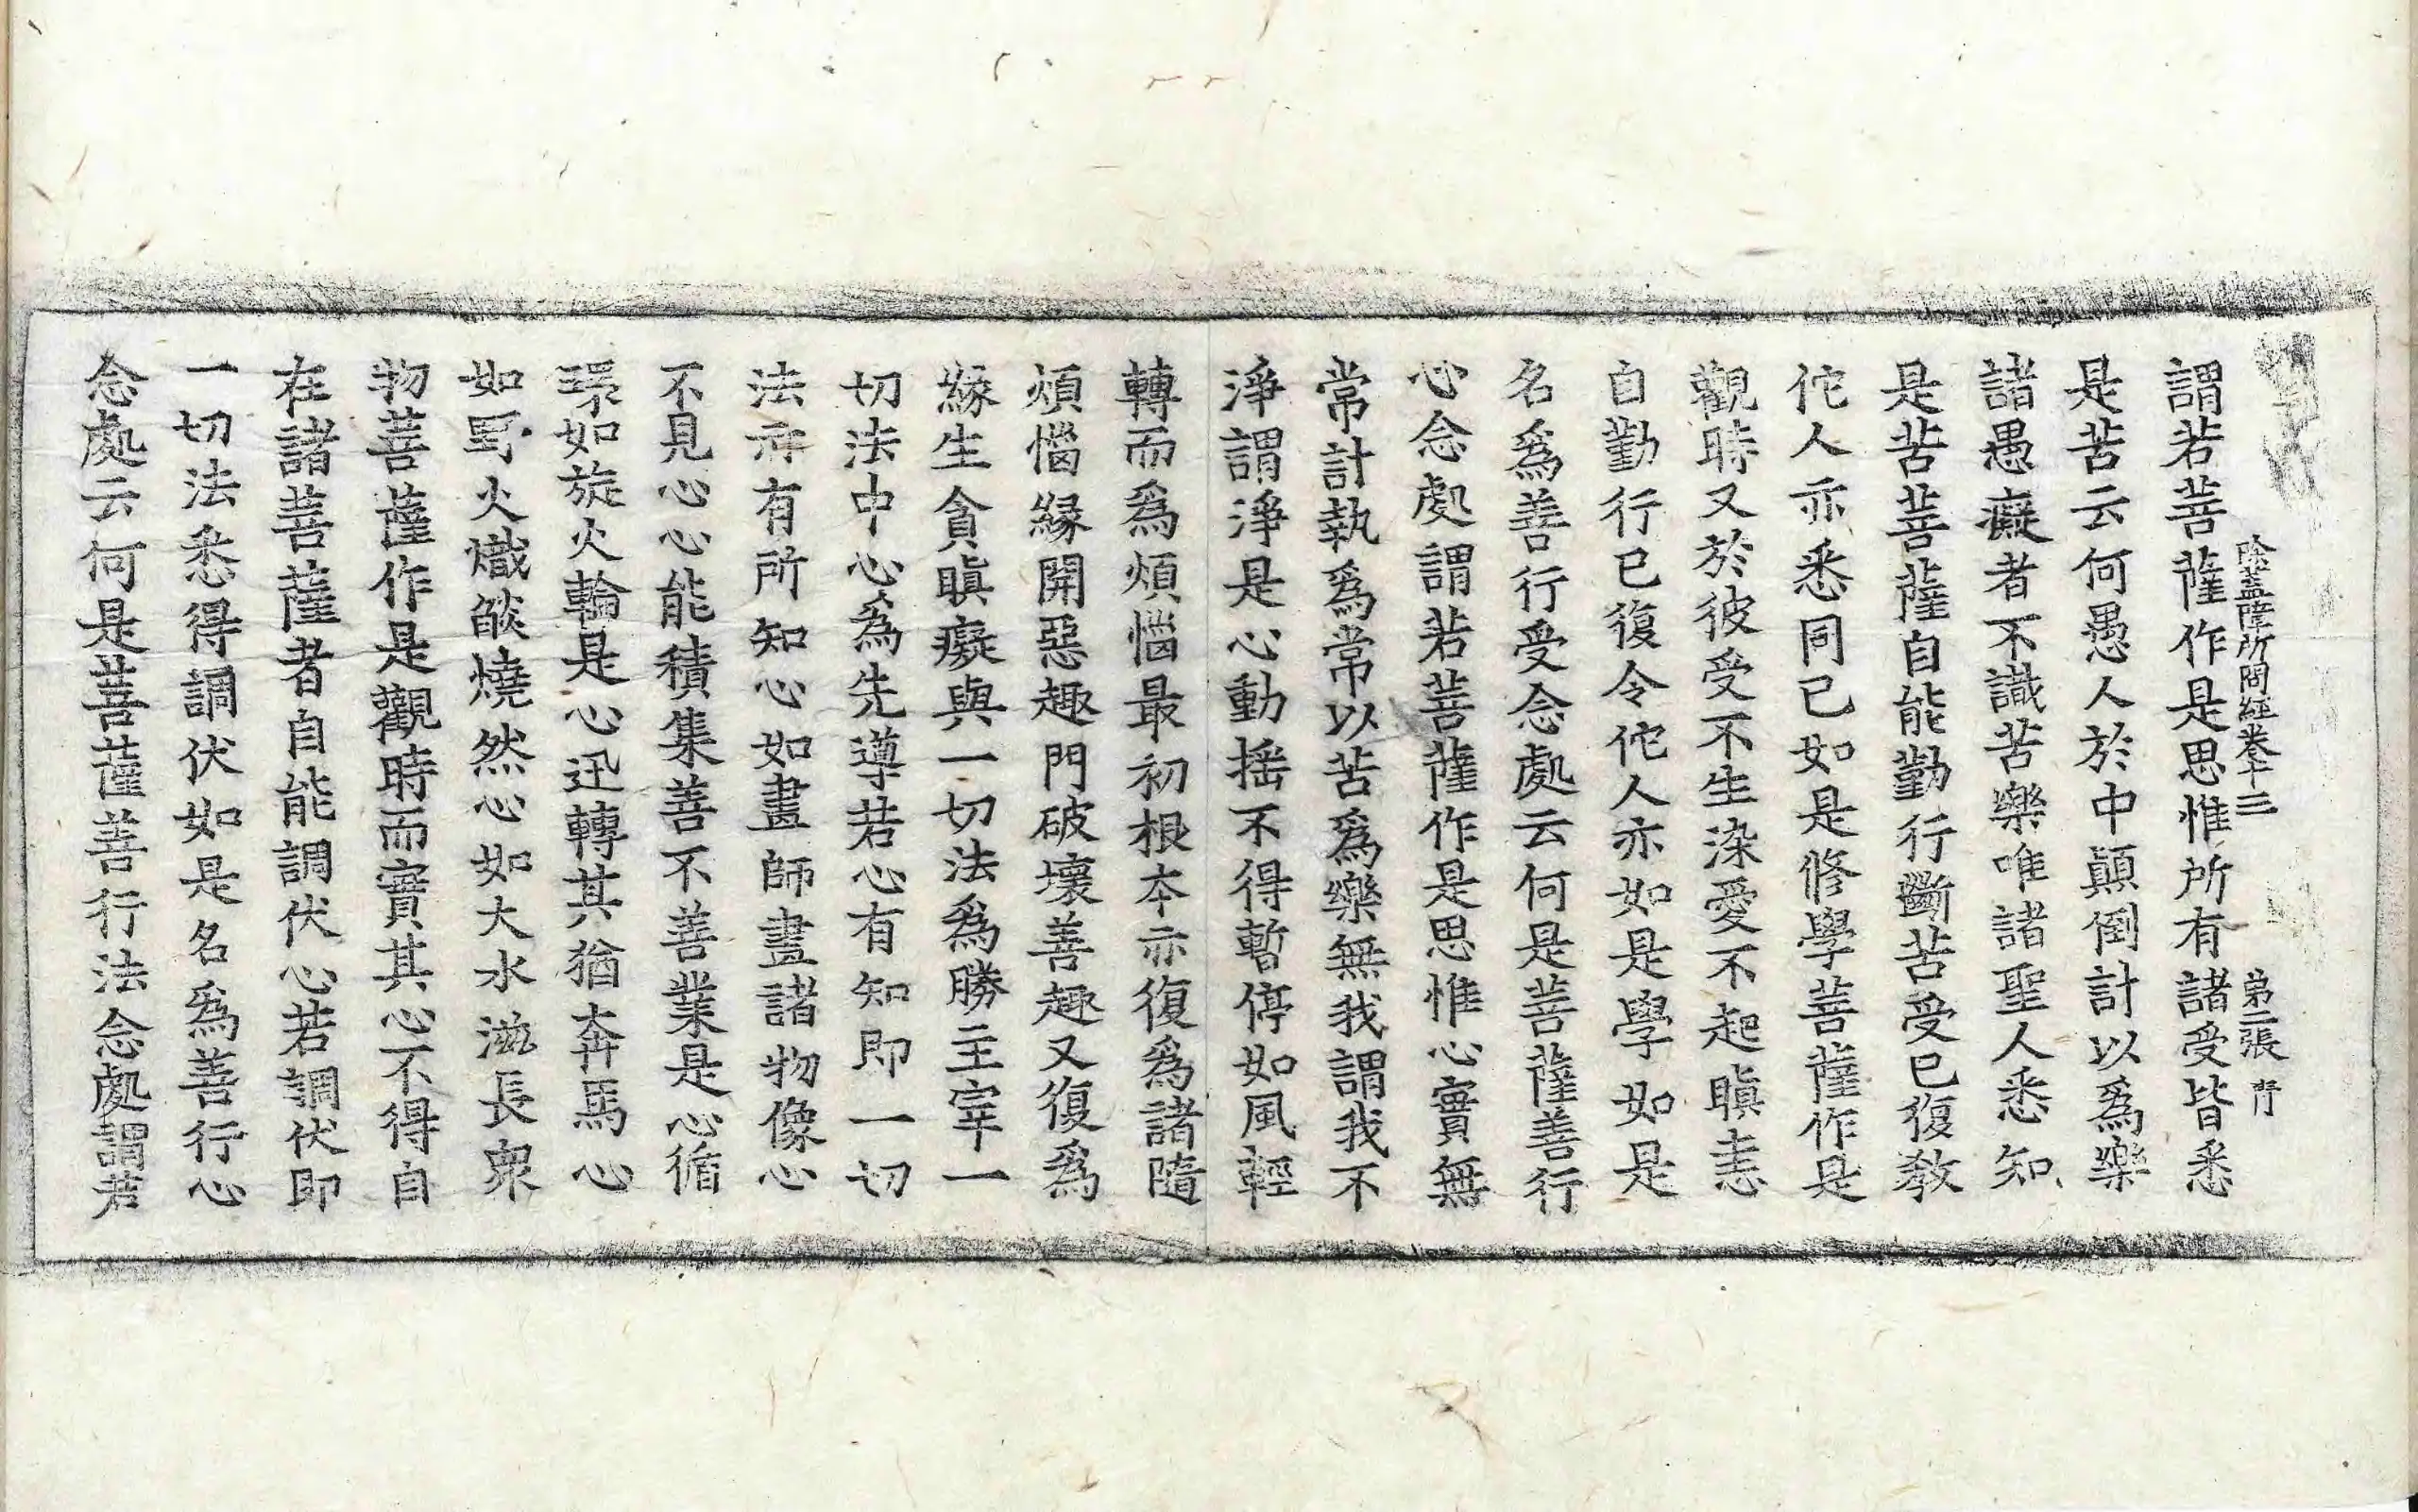 除蓋障所問經卷十三　第二張
謂若菩薩作是思惟所有諸受皆悉
是苦云何愚人於中顛倒計以爲樂
諸愚癡者不識苦樂唯諸聖人悉知
是苦菩薩自能勤行斷苦受已復教
佗人亦悉同已如是修學菩薩作是
觀時又於彼受不生染愛不起瞋恚
自勤行已復令佗人亦如是學如是
名爲善行受念處云何是菩薩善行
心念處謂若菩薩作是思惟心實無
常計執爲常以苦爲樂無我謂我不
淨謂淨是心動搖不得暫停如風輕
轉而爲煩惱最初根本亦復爲諸隨
煩惱緣開惡趣門破壞善趣又復爲
緣生貪瞋癡與一切法爲勝主宰一
切法中心爲先導若心有知即一切
法亦有所知心如畫師畫諸物像心
不見心心能積集善不善業是心循
環如旋火輪是心迅轉其猶奔馬心
如野火熾燄燒然心如大水滋長衆
物菩薩作是觀時而實其心不得自
在諸菩薩者自能調伏心若調伏即
一切法悉得調伏如是名爲善行心
念處云何是菩薩善行法念處謂若